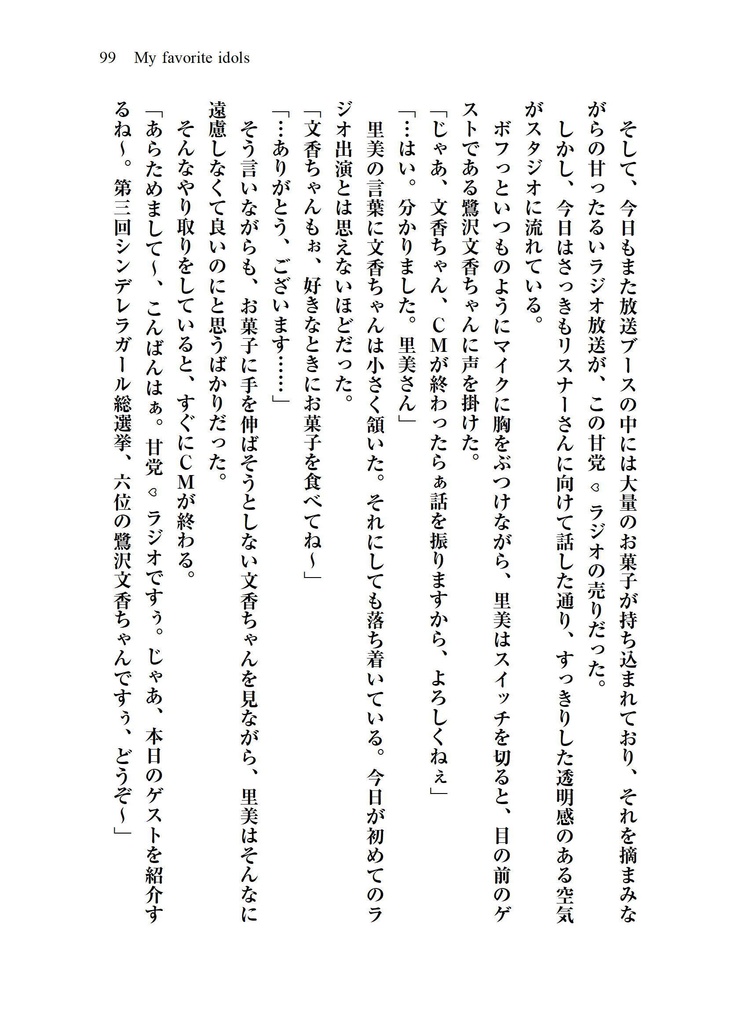 99 My favorite idols
そして、今日もまた放送ブースの中には大量のお菓子が持ち込まれており、それを摘まみな
がらの甘ったるいラジオ放送が、この甘党♡ラジオの売りだった。
しかし、今日はさっきもリスナーさんに向けて話した通り、すっきりした透明感のある空気
がスタジオに流れている。
ボフっといつものようにマイクに胸をぶつけながら、里美はスイッチを切ると、目の前のゲ
ストである鷺沢文香ちゃんに声を掛けた。
「じゃあ、文香ちゃん、CMが終わったらぁ話を振りますから、よろしくねぇ」
「…はい。分かりました。里美さん」
里美の言葉に文香ちゃんは小さく頷いた。それにしても落ち着いている。今日が初めてのラ
ジオ出演とは思えないほどだった。
「文香ちゃんもぉ、好きなときにお菓子を食べてね〜」
「…ありがとう、ございます……」
そう言いながらも、お菓子に手を伸ばそうとしない文香ちゃんを見ながら、里美はそんなに
遠慮しなくて良いのにと思うばかりだった。
そんなやり取りをしていると、すぐにCMが終わる。
「あらためまして〜、こんばんはぁ。甘党♡ラジオですぅ。じゃあ、本日のゲストを紹介す
るね〜。第三回シンデレラガール総選挙、六位の鷺沢文香ちゃんですぅ、どうぞ〜」